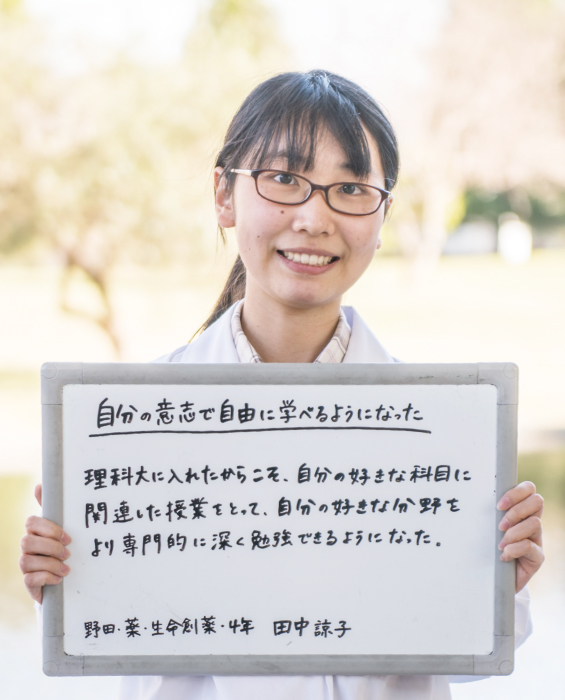 自分の意志で自由に学べるようになった
理科大に入れたからこそ、自分の好きな科目に
関連した授業をとって、自分の好きな分野を
より専門的に深く勉強できるようになった。
野田・薬・生命創薬・4年 田中諒子